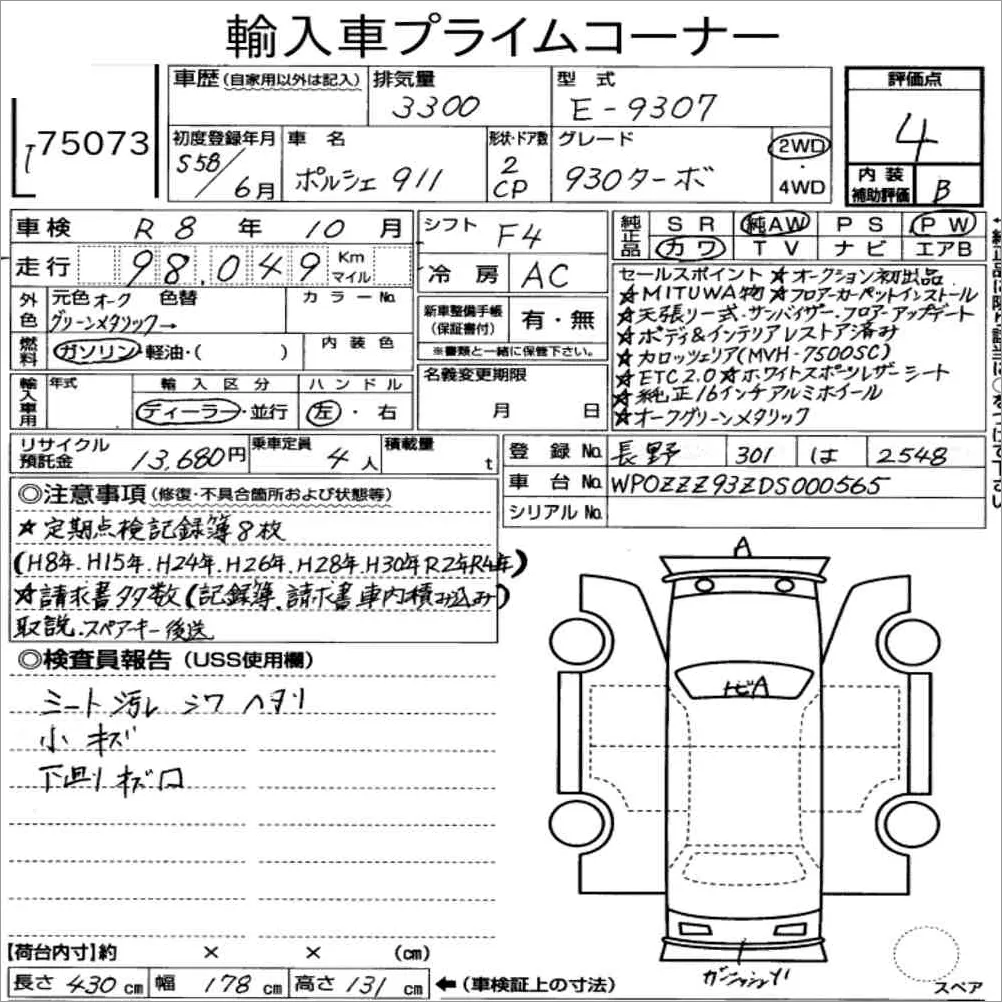 輸入車プライムコーナー
75073
車歴 (自家用以外は記入) 排気量 型式 評価点
3300 E-9307 4
初度登録年月 車名 形状・ドア数 グレード 2WD・4WD
S58/6月 ポルシェ 911 2 CP 930ターボ
内装補助評価 B
車検 R8年 10月 シフト F4
純正品 SR 純AW PS PW
カワ TV ナビ エアB
走行 98,049 Km マイル
冷房 AC
外色 元色 オーク 色替 カラーNo.
グリーンメタリック→
新車整備手帳(保証書付) 有・無
※書類と一緒に保管下さい。
燃料 ガソリン・軽油・( ) 内装色
輸入車用 年式 輸入区分 ハンドル
ディーラー・並行 左・右
名義変更期限
月 日
セールスポイント ★オークション初出品
★MITUWA物★フロアーカーペットインストール
★天張リ一式・サンバイザー・フロアーアップデート
★ボディ&インテリアレストア済み
★カロッツェリア(MVH-7500SC)
★ETC2.0★ホワイトスポーツレザーシート
★純正16インチアルミホイール
★オークグリーンメタリック
リサイクル預託金 13,680円 乗車定員 4人 積載量 t
登録No. 長野 301 は 2548
車台No. WPOZZZ93ZDS000565
シリアルNo.
◎注意事項(修復・不具合箇所および状態等)
★定期点検記録簿8枚
(H8年.H15年.H24年.H26年.H28年.H30年R2年R4年)
★請求書多数(記録簿、請求書車内積み込み)
取説.スペアーキー後送
◎検査員報告(USS使用欄)
シート汚レ シワ ヘタリ
小キズ
下廻リ キズ
A
トビA
【荷台内寸】約 × × (cm)
長さ 430 cm 幅 178 cm 高さ 131 cm ←(車検証上の寸法)
スペア